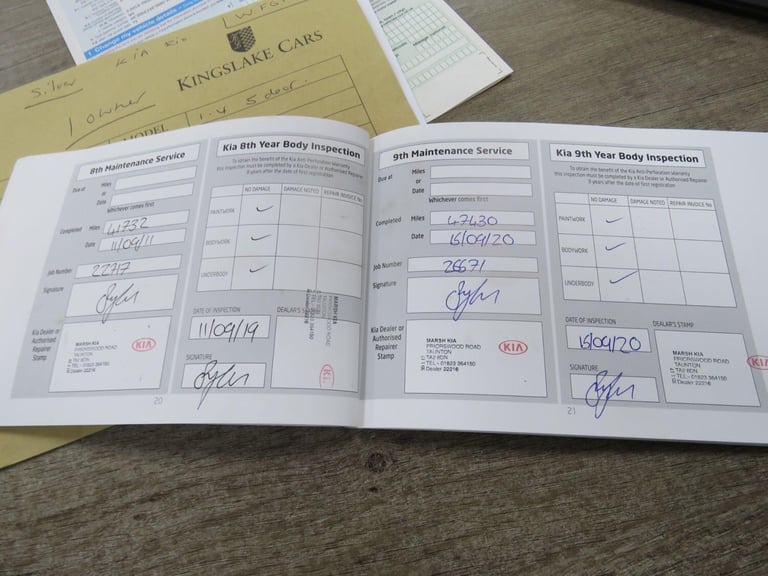 1 Change my vehicle details
Silver Kia Rio
KINGSLAKE CARS
1 owner
MODEL 1.4 5 door
8th Maintenance Service
Due at
Miles
or
Date
Whichever comes first
Completed Miles 41732
Date 11/09/11
Job Number 22717
Signature
Kia Dealer or
Authorised
Repairer
Stamp
MARSH KIA
PRIORSWOOD ROAD
TAUNTON
TA2 8DN
TEL - 01823 364150
Dealer 22216
KIA
20
Kia 8th Year Body Inspection
To obtain the benefit of the Kia Anti-Perforation Warranty
this inspection must be completed by a Kia Dealer or Authorised Repairer
8 years after the date of first registration
NO DAMAGE DAMAGE NOTED REPAIR INVOICE No
PAINTWORK
BODYWORK
UNDERBODY
DATE OF INSPECTION
11/09/19
DEALER'S STAMP
MARSH KIA
SIGNATURE
9th Maintenance Service
Due at
Miles
or
Date
Whichever comes first
Completed
Miles 47430
Date 15/09/20
Job Number 26671
Signature
Kia Dealer or
Authorised
Repairer
Stamp
MARSH KIA
PRIORSWOOD ROAD
TAUNTON
TA2 8DN
TEL - 01823 364150
Dealer 22216
KIA
Kia 9th Year Body Inspection
To obtain the benefit of the Kia Anti-Perforation Warranty
this inspection must be completed by a Kia Dealer or Authorised Repairer
9 years after the date of first registration
NO DAMAGE DAMAGE NOTED REPAIR INVOICE No
PAINTWORK
BODYWORK
UNDERBODY
DATE OF INSPECTION
15/09/20
DEALER'S STAMP
MARSH KIA
PRIORSWOOD ROAD
TAUNTON
TA2 8DN
TEL - 01823 364150
Dealer 22216
SIGNATURE
21